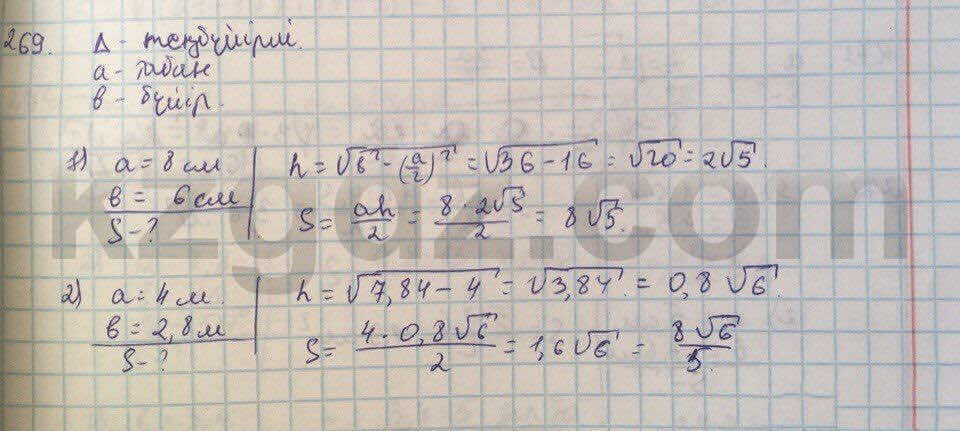 269. Δ - теңбүйірлі.
a - табан
в - бүйір.
1) a = 8 см
в = 6 см
S - ?
h = √(в² - (a/2)²) = √(36 - 16) = √20 = 2√5.
S = ah/2 = (8 · 2√5)/2 = 8√5.
2) a = 4 м.
в = 2,8 м
S - ?
h = √(7,84 - 4) = √3,84 = 0,8√6.
S = (4 · 0,8√6)/2 = 1,6√6 = 8√6/5.
kzgdz.com